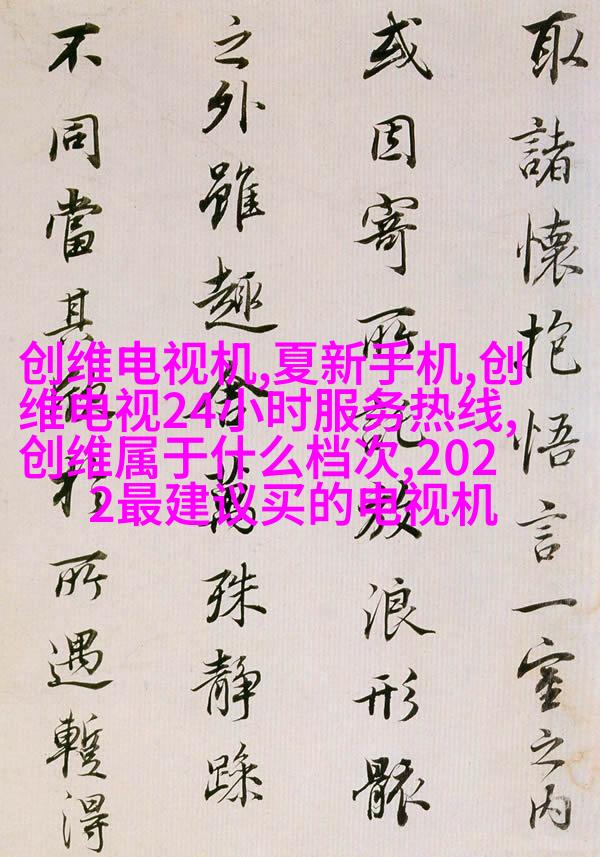 取諸懷抱悟言一室之内
或因寄所託放浪形骸
之外雖趣舍萬殊靜躁
不同當其欣於所遇蹔得
创维电视机,夏新手机,创
维电视24小时服务热线,
创维属于什么档次,202
2最建议买的电视机